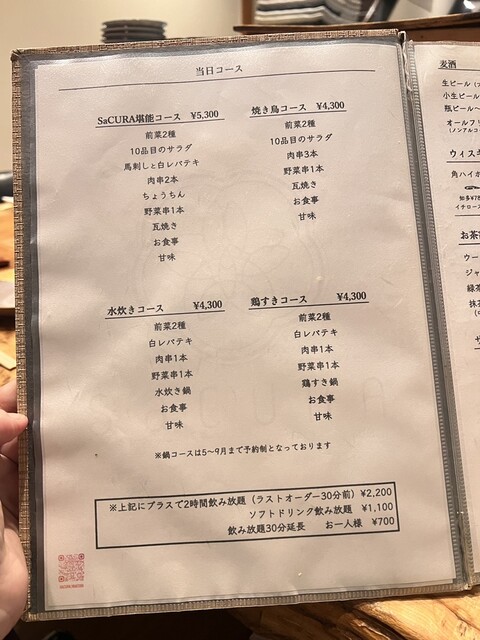 当日コース
SaCURA堪能コース ¥5,300
前菜2種
10品目のサラダ
馬刺しと白レバテキ
肉串2本
ちょうちん
野菜串1本
瓦焼き
お食事
甘味
焼き鳥コース ¥4,300
前菜2種
10品目のサラダ
肉串3本
野菜串1本
瓦焼き
お食事
甘味
水炊きコース ¥4,300
前菜2種
白レバテキ
肉串1本
野菜串1本
水炊き鍋
お食事
甘味
鶏すきコース ¥4,300
前菜2種
白レバテキ
肉串1本
野菜串1本
鶏すき鍋
お食事
甘味
※鍋コースは5~9月まで予約制となっております
※上記にプラスで2時間飲み放題(ラストオーダー30分前) ¥2,200
ソフトドリンク飲み放題 ¥1,100
飲み放題30分延長 お一人様 ¥700
麦酒
生ビール
小生ビー
瓶ビール~
オールフリ
(ノンアルコ
ウィスキ
角ハイボ
知多¥78
イチローズ
お茶
ウー
ジャ
緑茶
抹茶